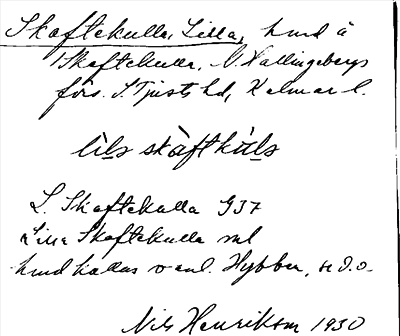 Skaftekulla, Lilla, hmd å
Skaftekulla, V. Hallingebergs
förs. S. Tjusts hd, Kalmar l.
lìls skàftkùls
L. Skaftekulla G37
Lilla Skaftekulla ml
hmd kallas vanl. Hybber, se d.o.
Nils Henrikson 1930